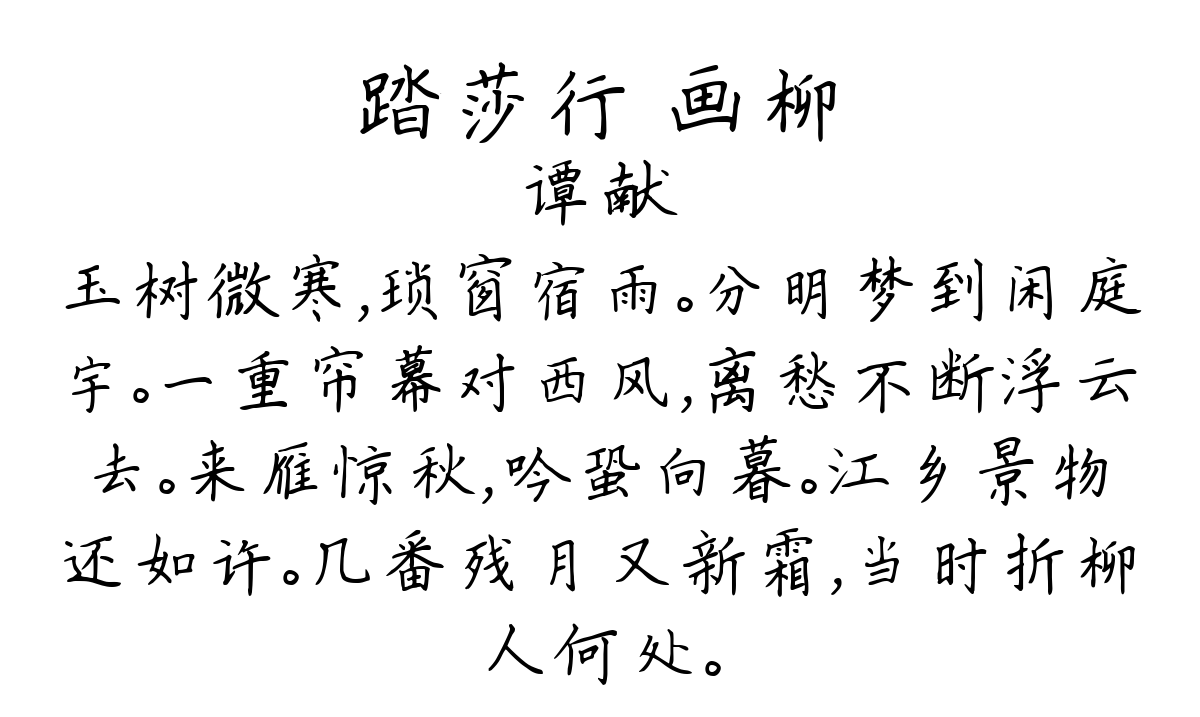 踏莎行 画柳
谭献
玉树微寒,琐窗宿雨。分明梦到闲庭
宇。一重帘幕对西风,离愁不断浮云
去。来雁惊秋,吟蛩向暮。江乡景物
还如许。几番残月又新霜,当时折柳
人何处。